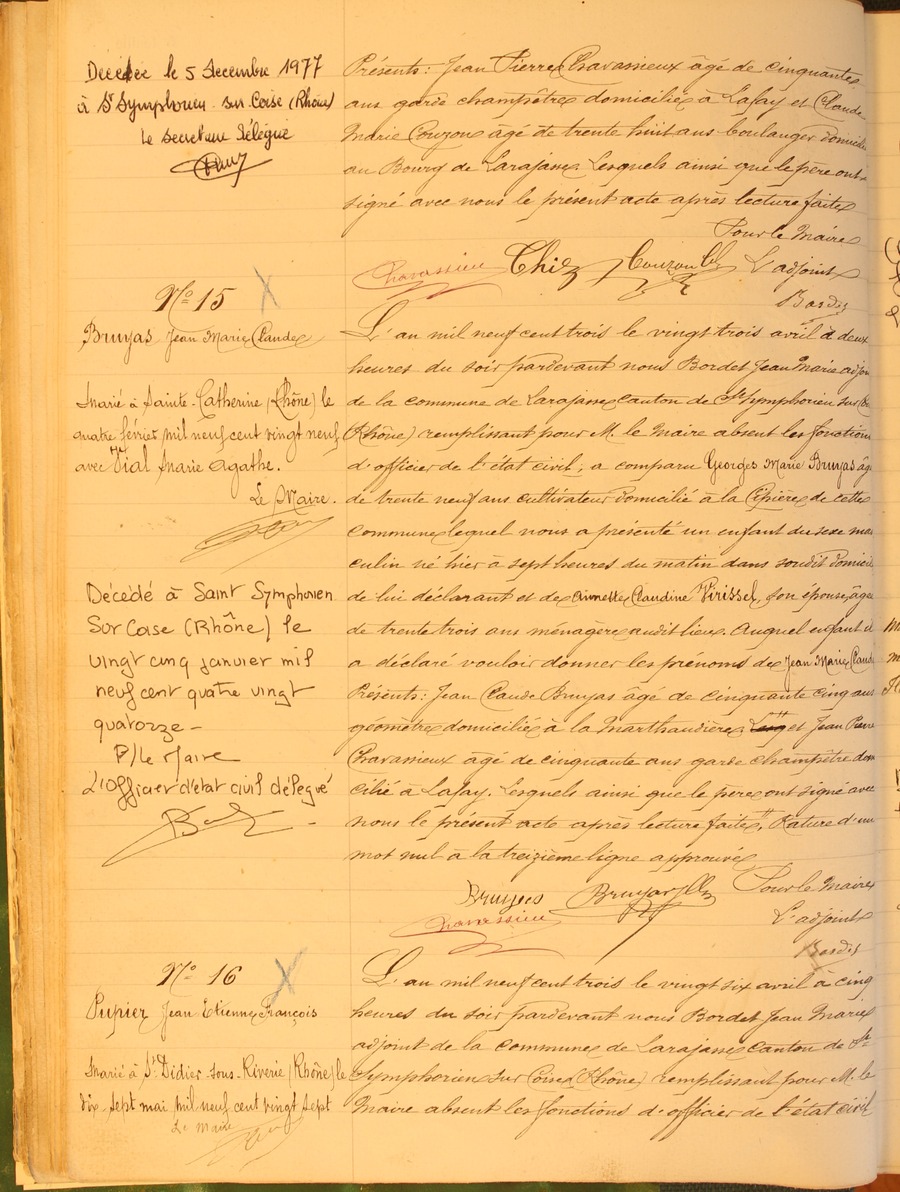 Décédée le 5 Decembre 1977
à St Symphorien sur Coise (Rhône)
Le secrétaire délégué
Présents : Jean Pierre Chavassieux âgé de cinquante
ans garde champêtre domicilié à Lafay et Claude
Marie Couzon âgé de trente huit ans boulanger domicilié
au Bourg de Larajasse. Lesquels ainsi que le père ont
signé avec nous le présent acte après lecture faite
Pour le Maire
Chavassieu Thiz Couzon L'adjoint
Bordet
No 15
Bruyas Jean Marie Claude
Marié à Sainte-Catherine (Rhône) le
quatre février mil neuf cent vingt neuf
avec Vial Marie Agathe.
Le Maire.
Décédé à Saint Symphorien
Sur Coise (Rhône) le
vingt cinq janvier mil
neuf cent quatre vingt
quatorze -
P/Le Maire
L'Officier d'état civil délégué
L'an mil neuf cent trois le vingt trois avril à deux
heures du soir pardevant nous Bordet Jean Marie adjoi
de la commune de Larajasse canton de St Symphorien sur
Rhône) remplissant pour M. le Maire absent les fonctions
d'officier de l'état civil ; a comparu Georges Marie Bruyas âg
de trente neuf ans cultivateur domicilié à la Cipière de cette
commune lequel nous a présenté un enfant du sexe mas
culin né hier à sept heures du matin dans sondit domicil
de lui déclarant et de Annette Claudine Virissel, son épouse, âgée
de trente trois ans ménagère audit lieu. Auquel enfant il
a déclaré vouloir donner les prénoms de Jean Marie Claud
Présents : Jean Claude Bruyas âgé de cinquante cinq ans
géomètre domicilié à la Marthaudière et Jean Pierre
Chavassieux âgé de cinquante ans garde champêtre dom
cilié à Lafay. Lesquels ainsi que le père ont signé avec
nous le présent acte après lecture faite ". Rature d'un
mot nul à la treizième ligne approuvée
Bruyas Bruyas Pour le Maire
Chavassieu L'adjoint
Bordet
No 16
Pupier Jean Etienne François
Marié à St Didier-sous-Riverie (Rhône) le
dix-sept mai mil neuf cent vingt sept
Le Maire
L'an mil neuf cent trois le vingt six avril à cinq
heures du soir pardevant nous Bordet Jean Marie
adjoint de la commune de Larajasse canton de St
Symphorien sur Coise (Rhône) remplissant pour M. le
Maire absent les fonctions d'officier de l'état civil